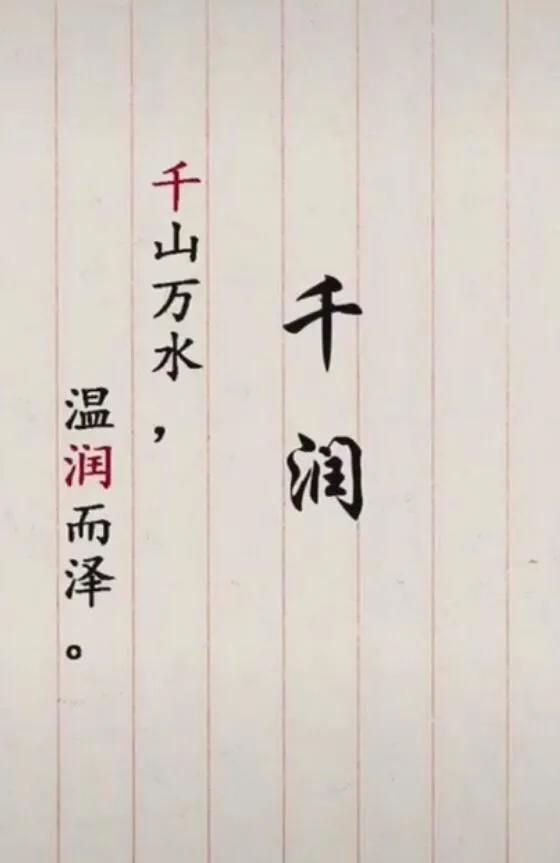 千润
千山万水，
温润而泽。